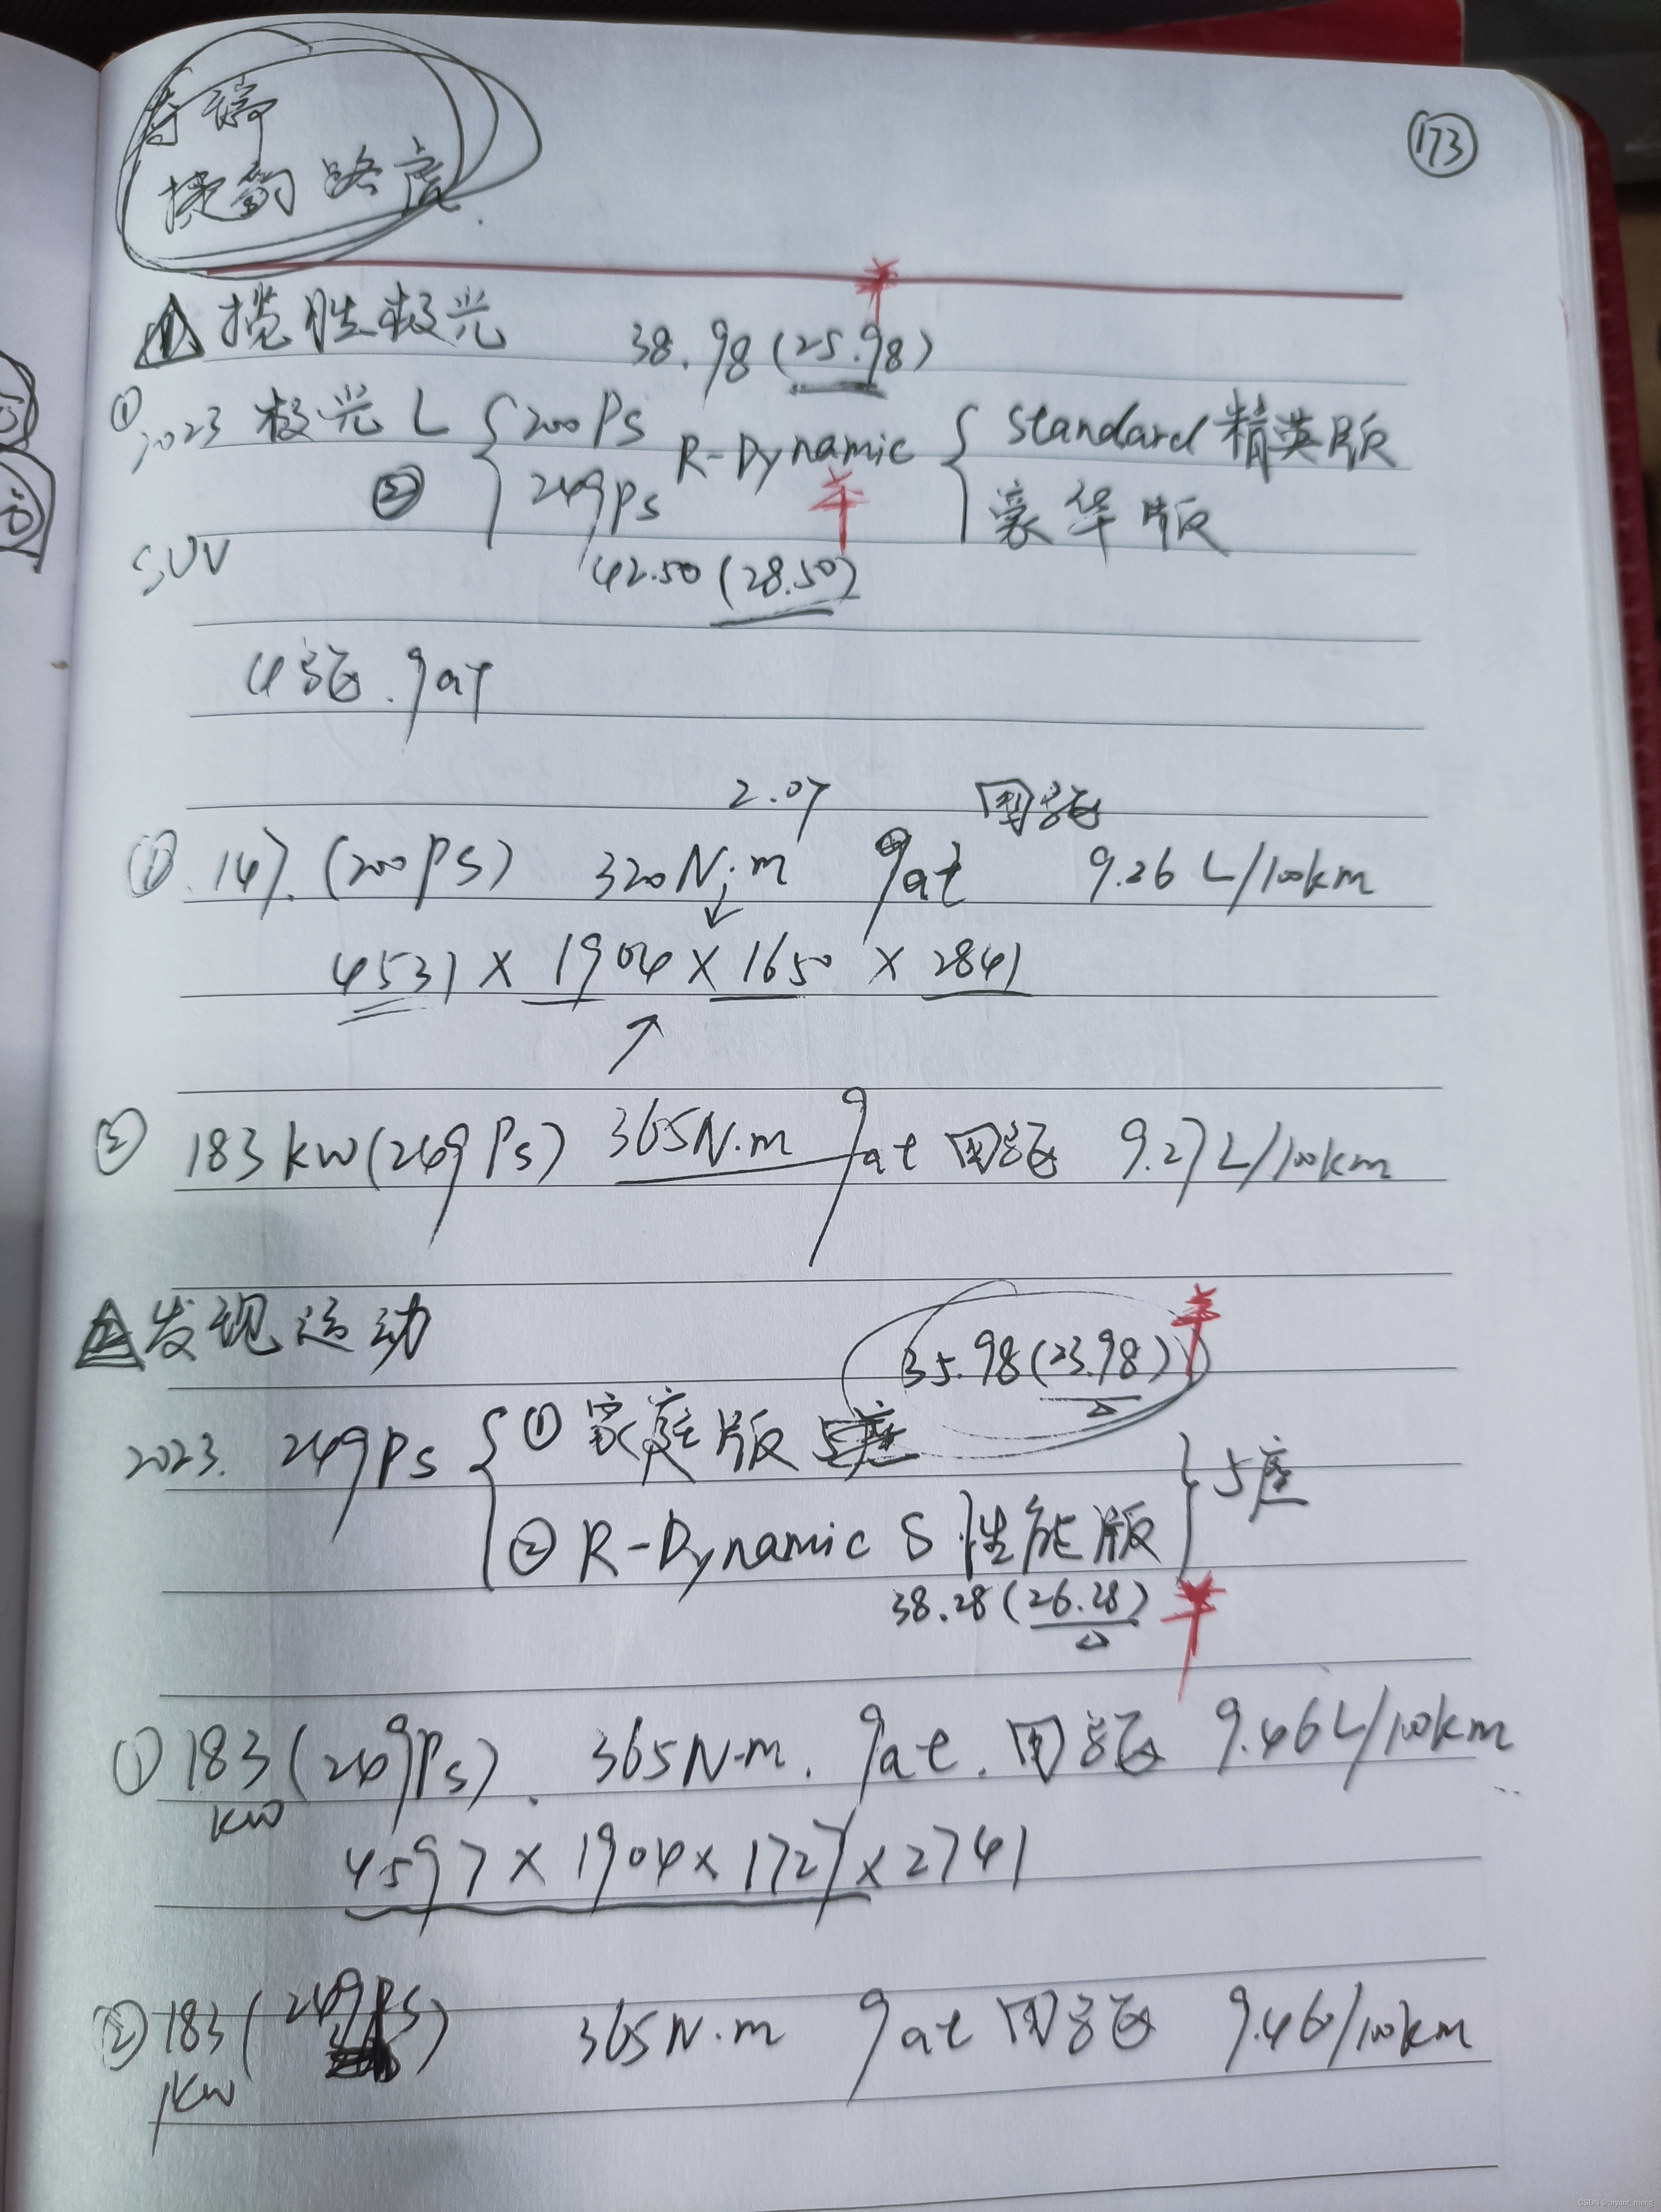 奇瑞
捷豹路虎
173
1 揽胜极光 38.98(25.98)
① 2023 极光L { 200Ps R-Dynamic { Standard 精英版
② 249Ps 豪华版
SUV 42.50(28.50)
4驱. 9at
2.0T 四驱
① 147.(200PS) 320N.m 9at 9.26L/100km
4531×1904×1650×2841
② 183kw(249Ps) 365N.m 9at 四驱 9.27L/100km
2 发现运动 35.98(23.98)
2023. 249Ps { ① 家庭版 } 5座
② R-Dynamic S 性能版
38.28(26.28)
① 183kw(249Ps). 365N.m. 9at. 四驱 9.46L/100km
4597×1904×1727×2741
② 183kw(249Ps) 365N.m 9at 四驱 9.46/100km
CSDN @bryant_meng